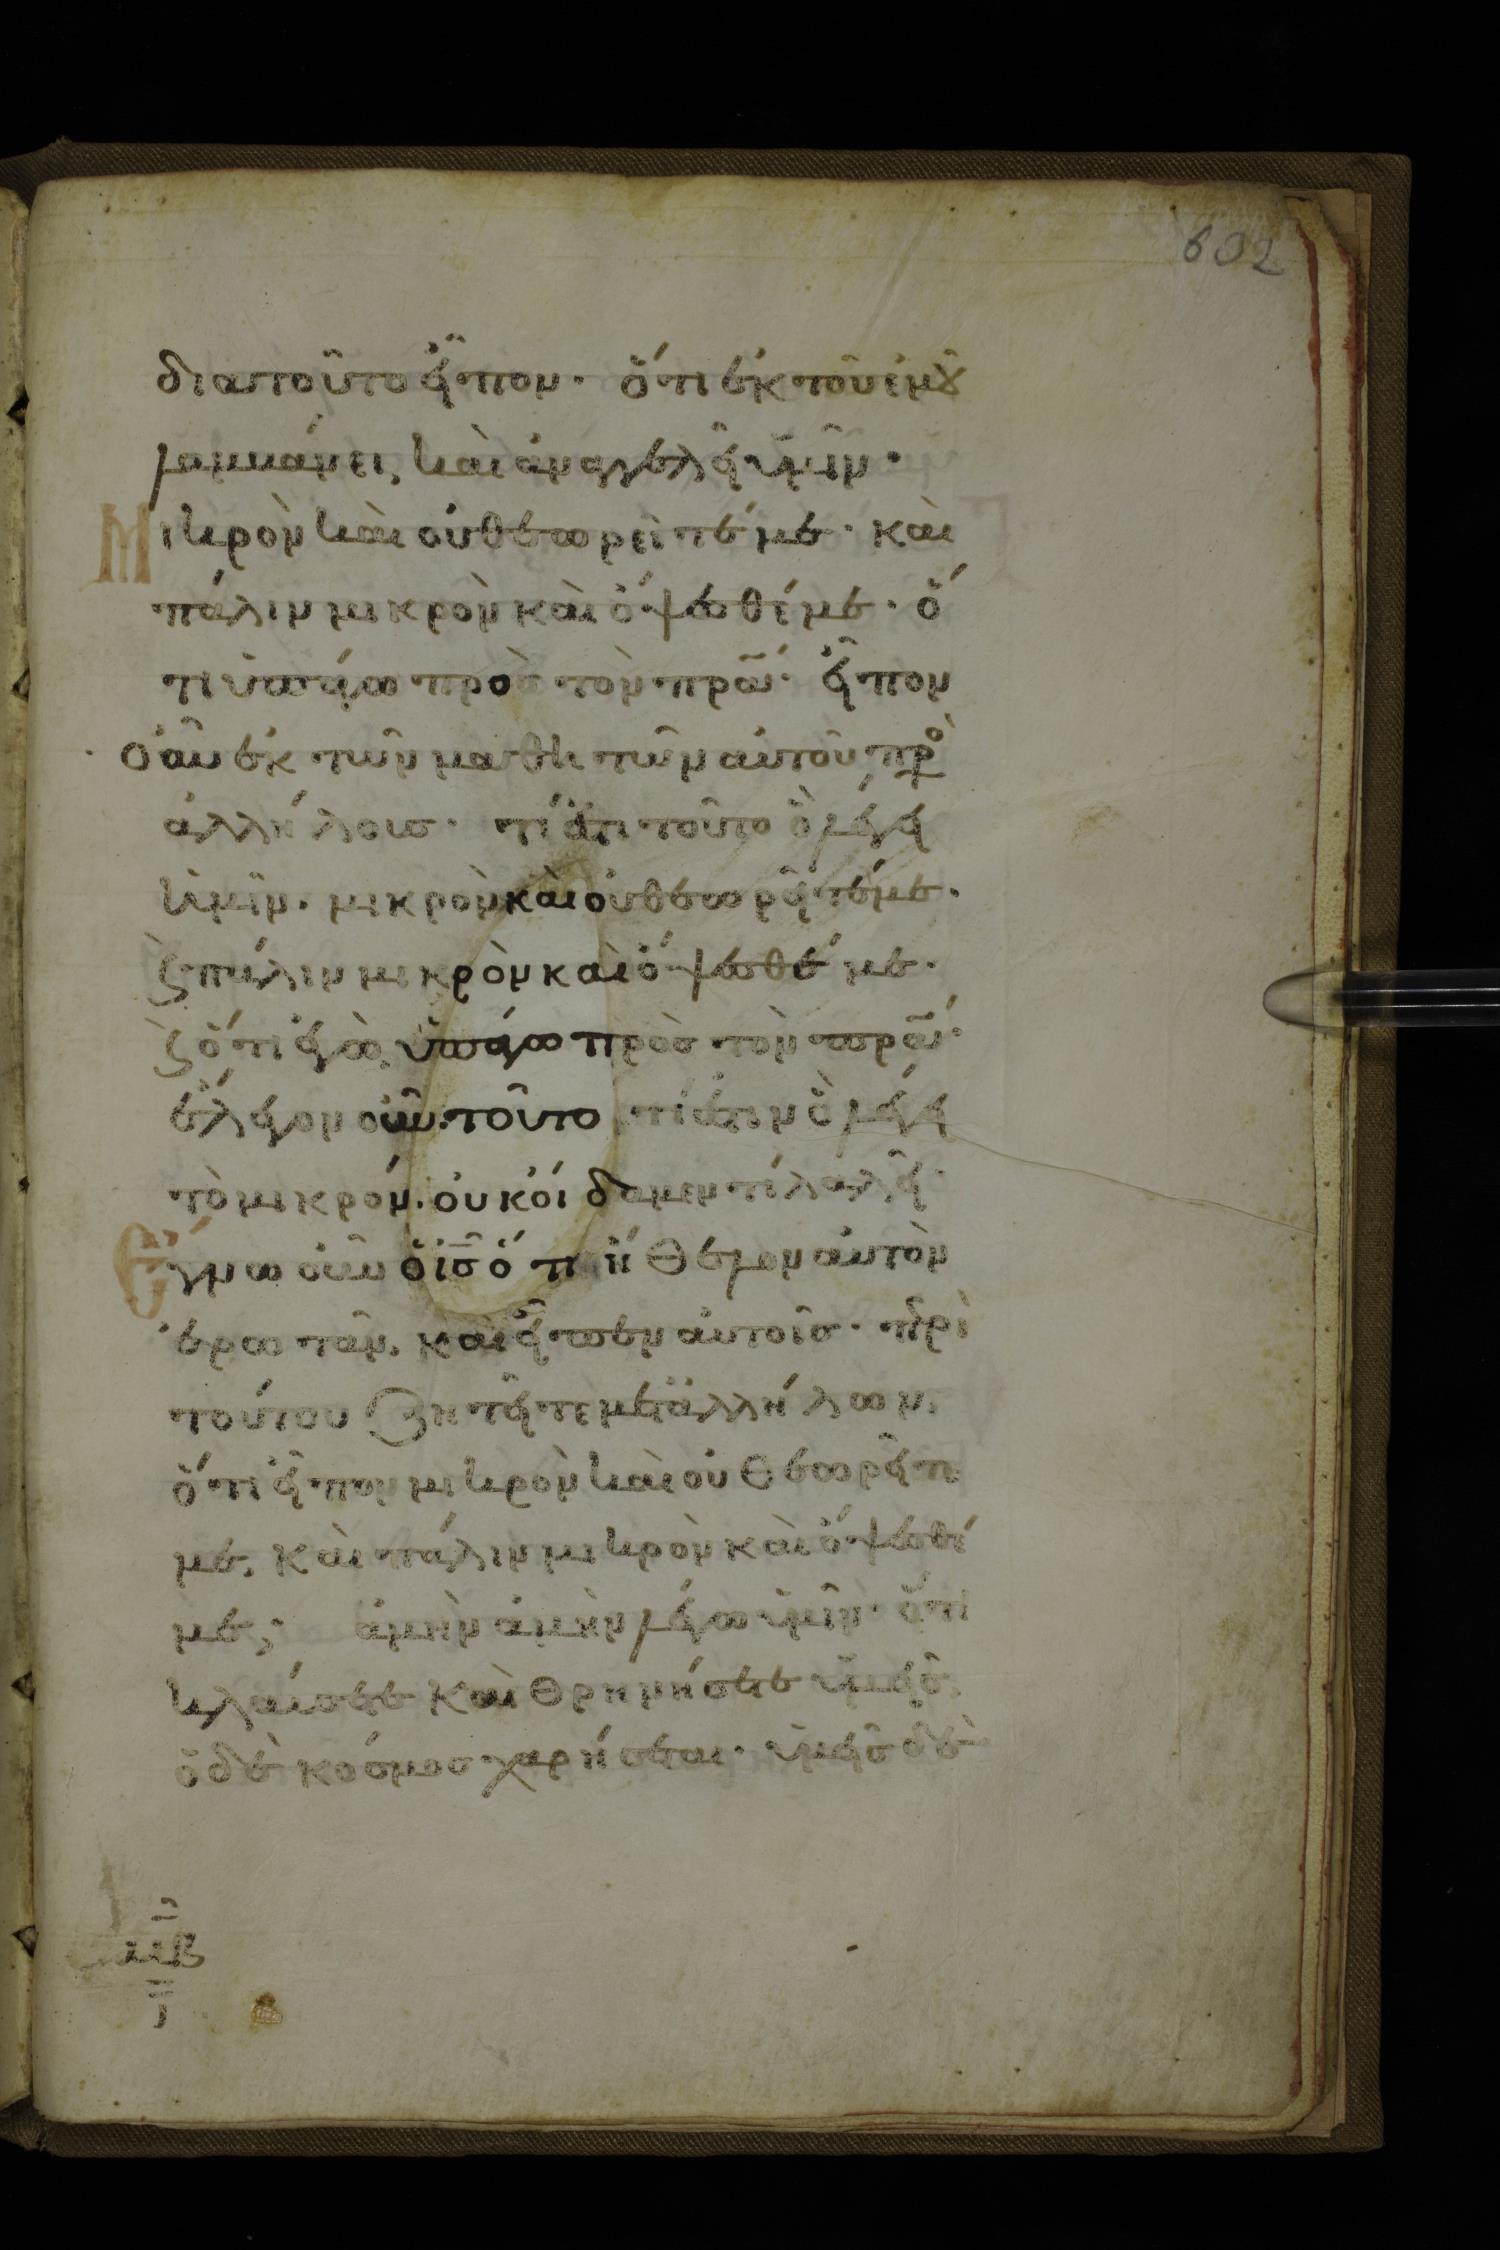 602
διατοῦτο εἶπον· ὅτι ἐκ τοῦ ἐμοῦ
λαμβάνει, καὶ ἀναγγελεῖ ὑμῖν·
Μικρὸν καὶ οὐ θεωρεῖτέ με· καὶ
πάλιν μικρὸν καὶ ὄψεσθέ με· ὅ
τι ὑπάγω πρὸς τὸν πρα· εἶπον
οὖν ἐκ τῶν μαθητῶν αὐτοῦ πρὸ
ἀλλήλους· τί ἐστι τοῦτο ὃ λέγει
ἡμῖν· μικρὸν καὶ οὐ θεωρεῖτέ με·
ϗ πάλιν μικρὸν καὶ ὄψεσθέ με·
ϗ ὅτι ἐγὼ ὑπάγω πρὸς τὸν πρα·
ἔλεγον οὖν· τοῦτο τί ἐστιν ὃ λέγει
τὸ μικρόν· οὐκ οἴδαμεν τί λαλεῖ·
Ἔγνω οὖν ὁ ις ὅτι ἤθελον αὐτὸν
ἐρωτᾶν, καὶ εἶπεν αὐτοῖς· περὶ
τούτου ζητεῖτε μετ ἀλλήλων,
ὅτι εἶπον μικρὸν καὶ οὐ θεωρεῖτε
με, καὶ πάλιν μικρὸν καὶ ὄψεσθέ
με; ἀμὴν ἀμὴν λέγω ὑμῖν· ὅτι
κλαύσετε καὶ θρηνήσετε ὑμεῖς,
ὁ δὲ κόσμος χαρήσεται· ὑμεῖς δὲ